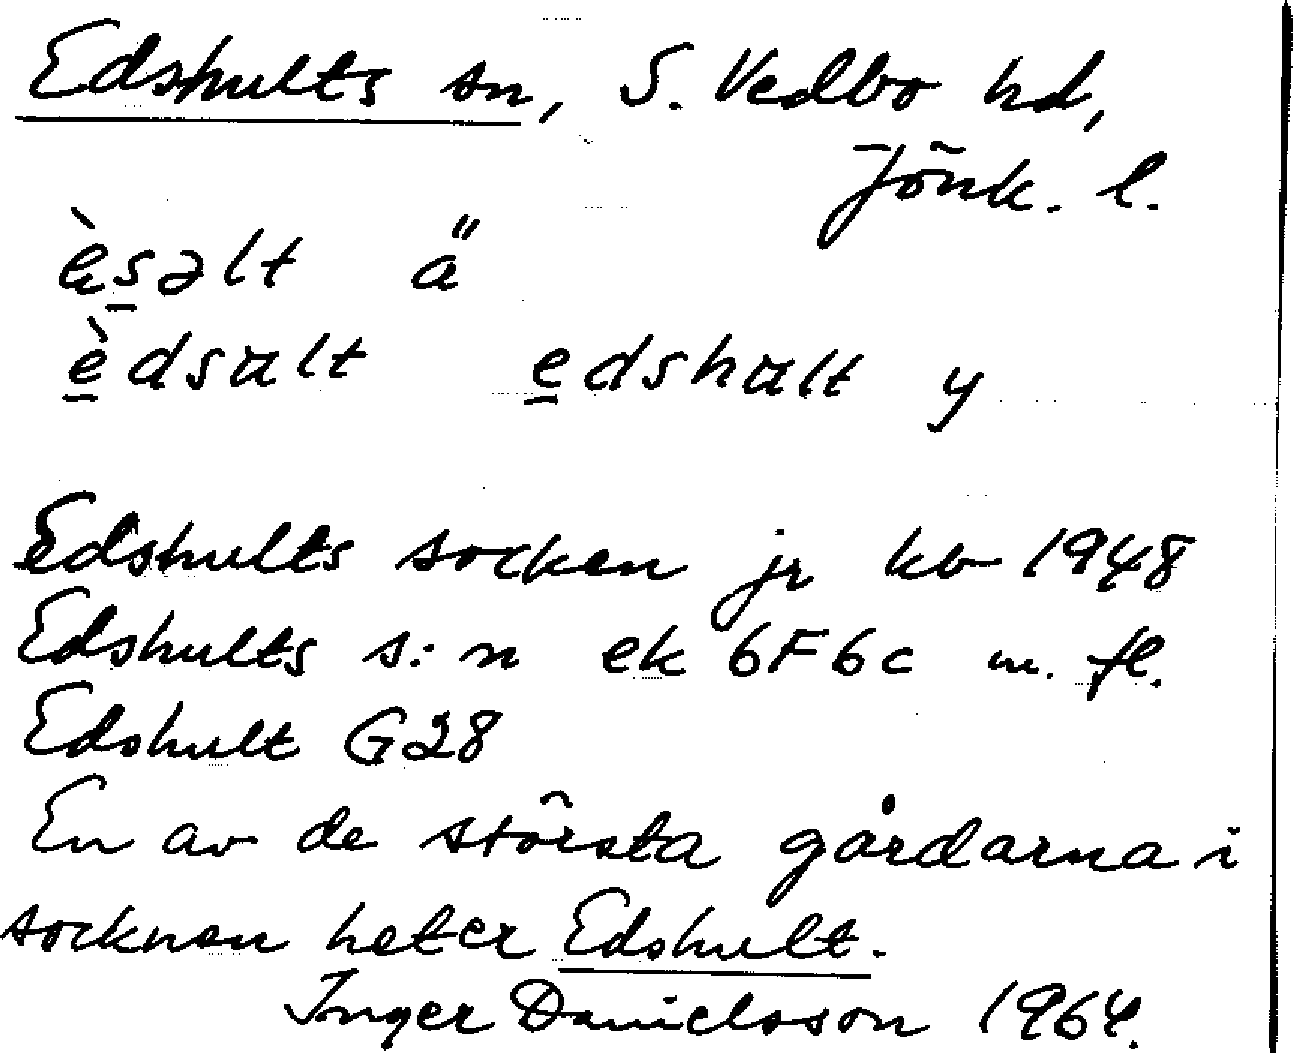 Edshults sn, S. Vedbo hd,
Jönk. l.
è̱s̱əlt ä
è̱dsalt e̱dshalt y
Edshults socken jr kb 1948
Edshults s:n ek 6F6c m. fl.
Edshult G28
En av de största gårdarna i
socknen heter Edshult.
Inger Danielsson 1964.